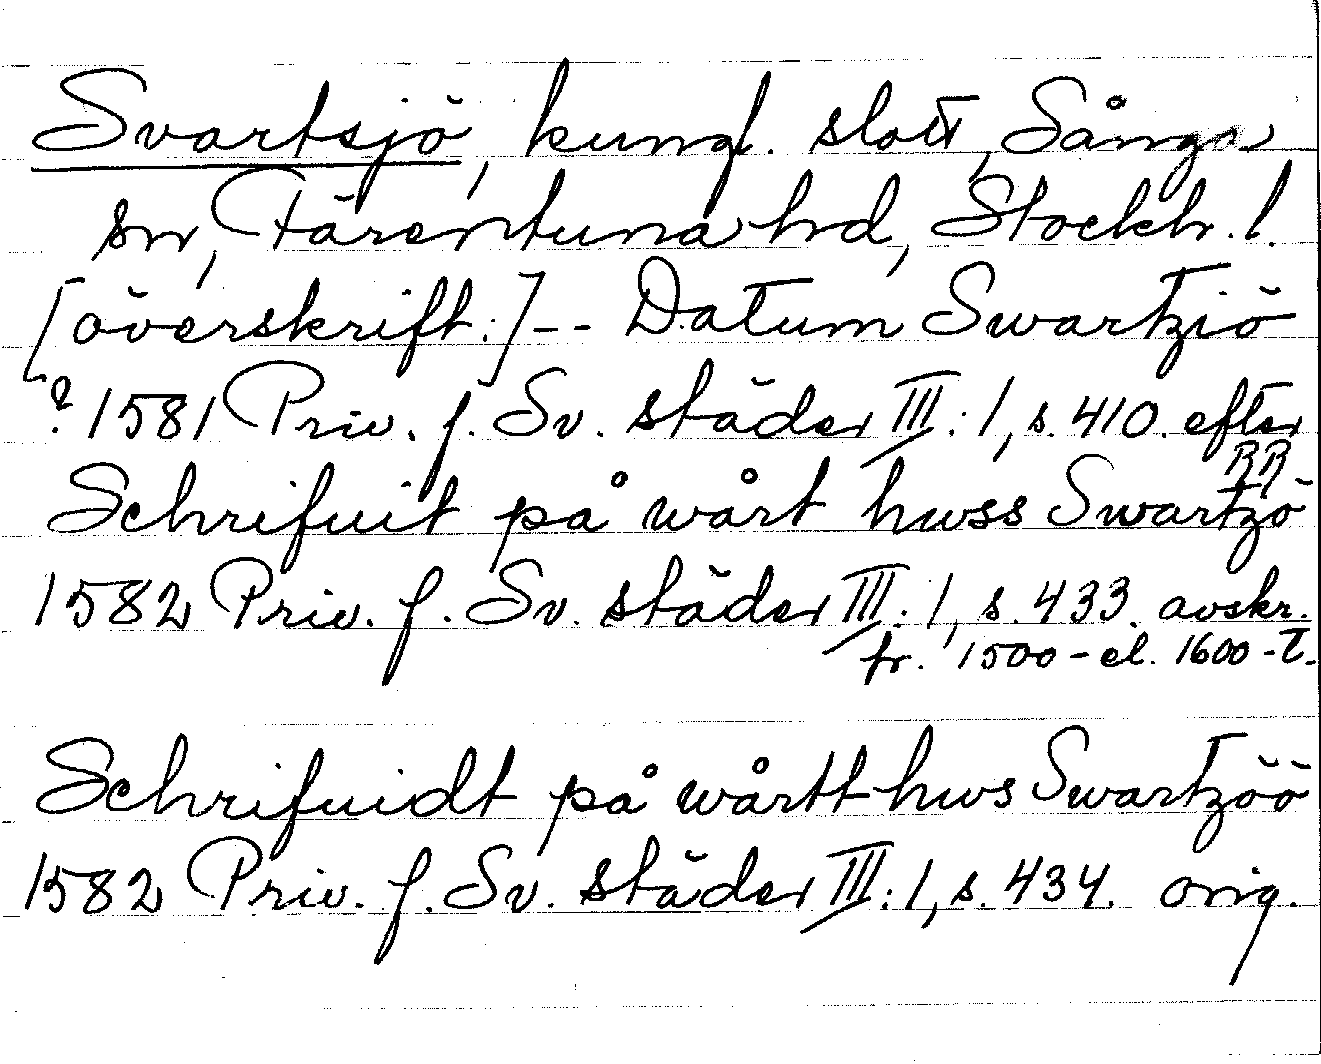 Svartsjö, kungl. slott, Sånga
sn, Färentuna hd, Stockh. l.
[överskrift:] -- Datum Swartziö
? 1581 Priv. f. Sv. städer III: 1, s. 410. efter
RR
Schrifuit på wårt hwss Swartzö
1582 Priv. f. Sv. städer III: 1, s. 433. avskr.
fr. 1500- el. 1600-t.
Schrifuidt på wårtt hws Swartzöö
1582 Priv. f. Sv. städer III: 1, s. 434. orig.